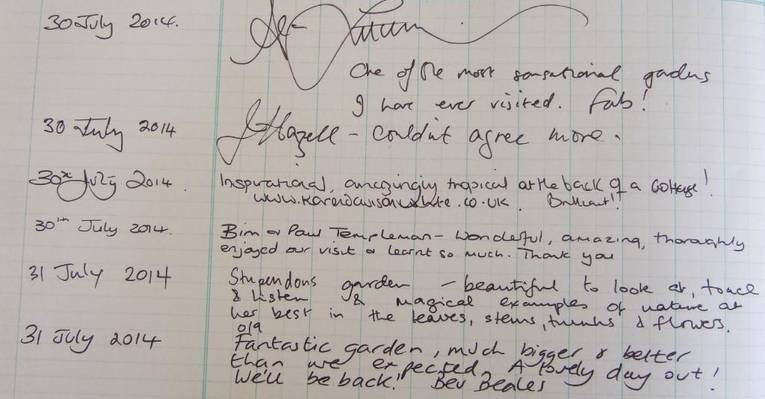 30 July 2014.
One of the most sensational gardens
I have ever visited. Fab!
30 July 2014 J Hazell - Couldn't agree more.
30th July 2014. Inspirational, amazingly tropical at the back of a cottage!
Brilliant!!
30th July 2014. Bim & Paul Templeman - Wonderful, amazing, thoroughly
enjoyed our visit & learnt so much. Thank you
31 July 2014 Stupendous garden - beautiful to look at, touch
& listen & magical examples of nature at
her best in the leaves, stems, trunks & flowers.
31 July 2014 Fantastic garden, much bigger & better
than we expected. A lovely day out!
We'll be back! Bev Beales